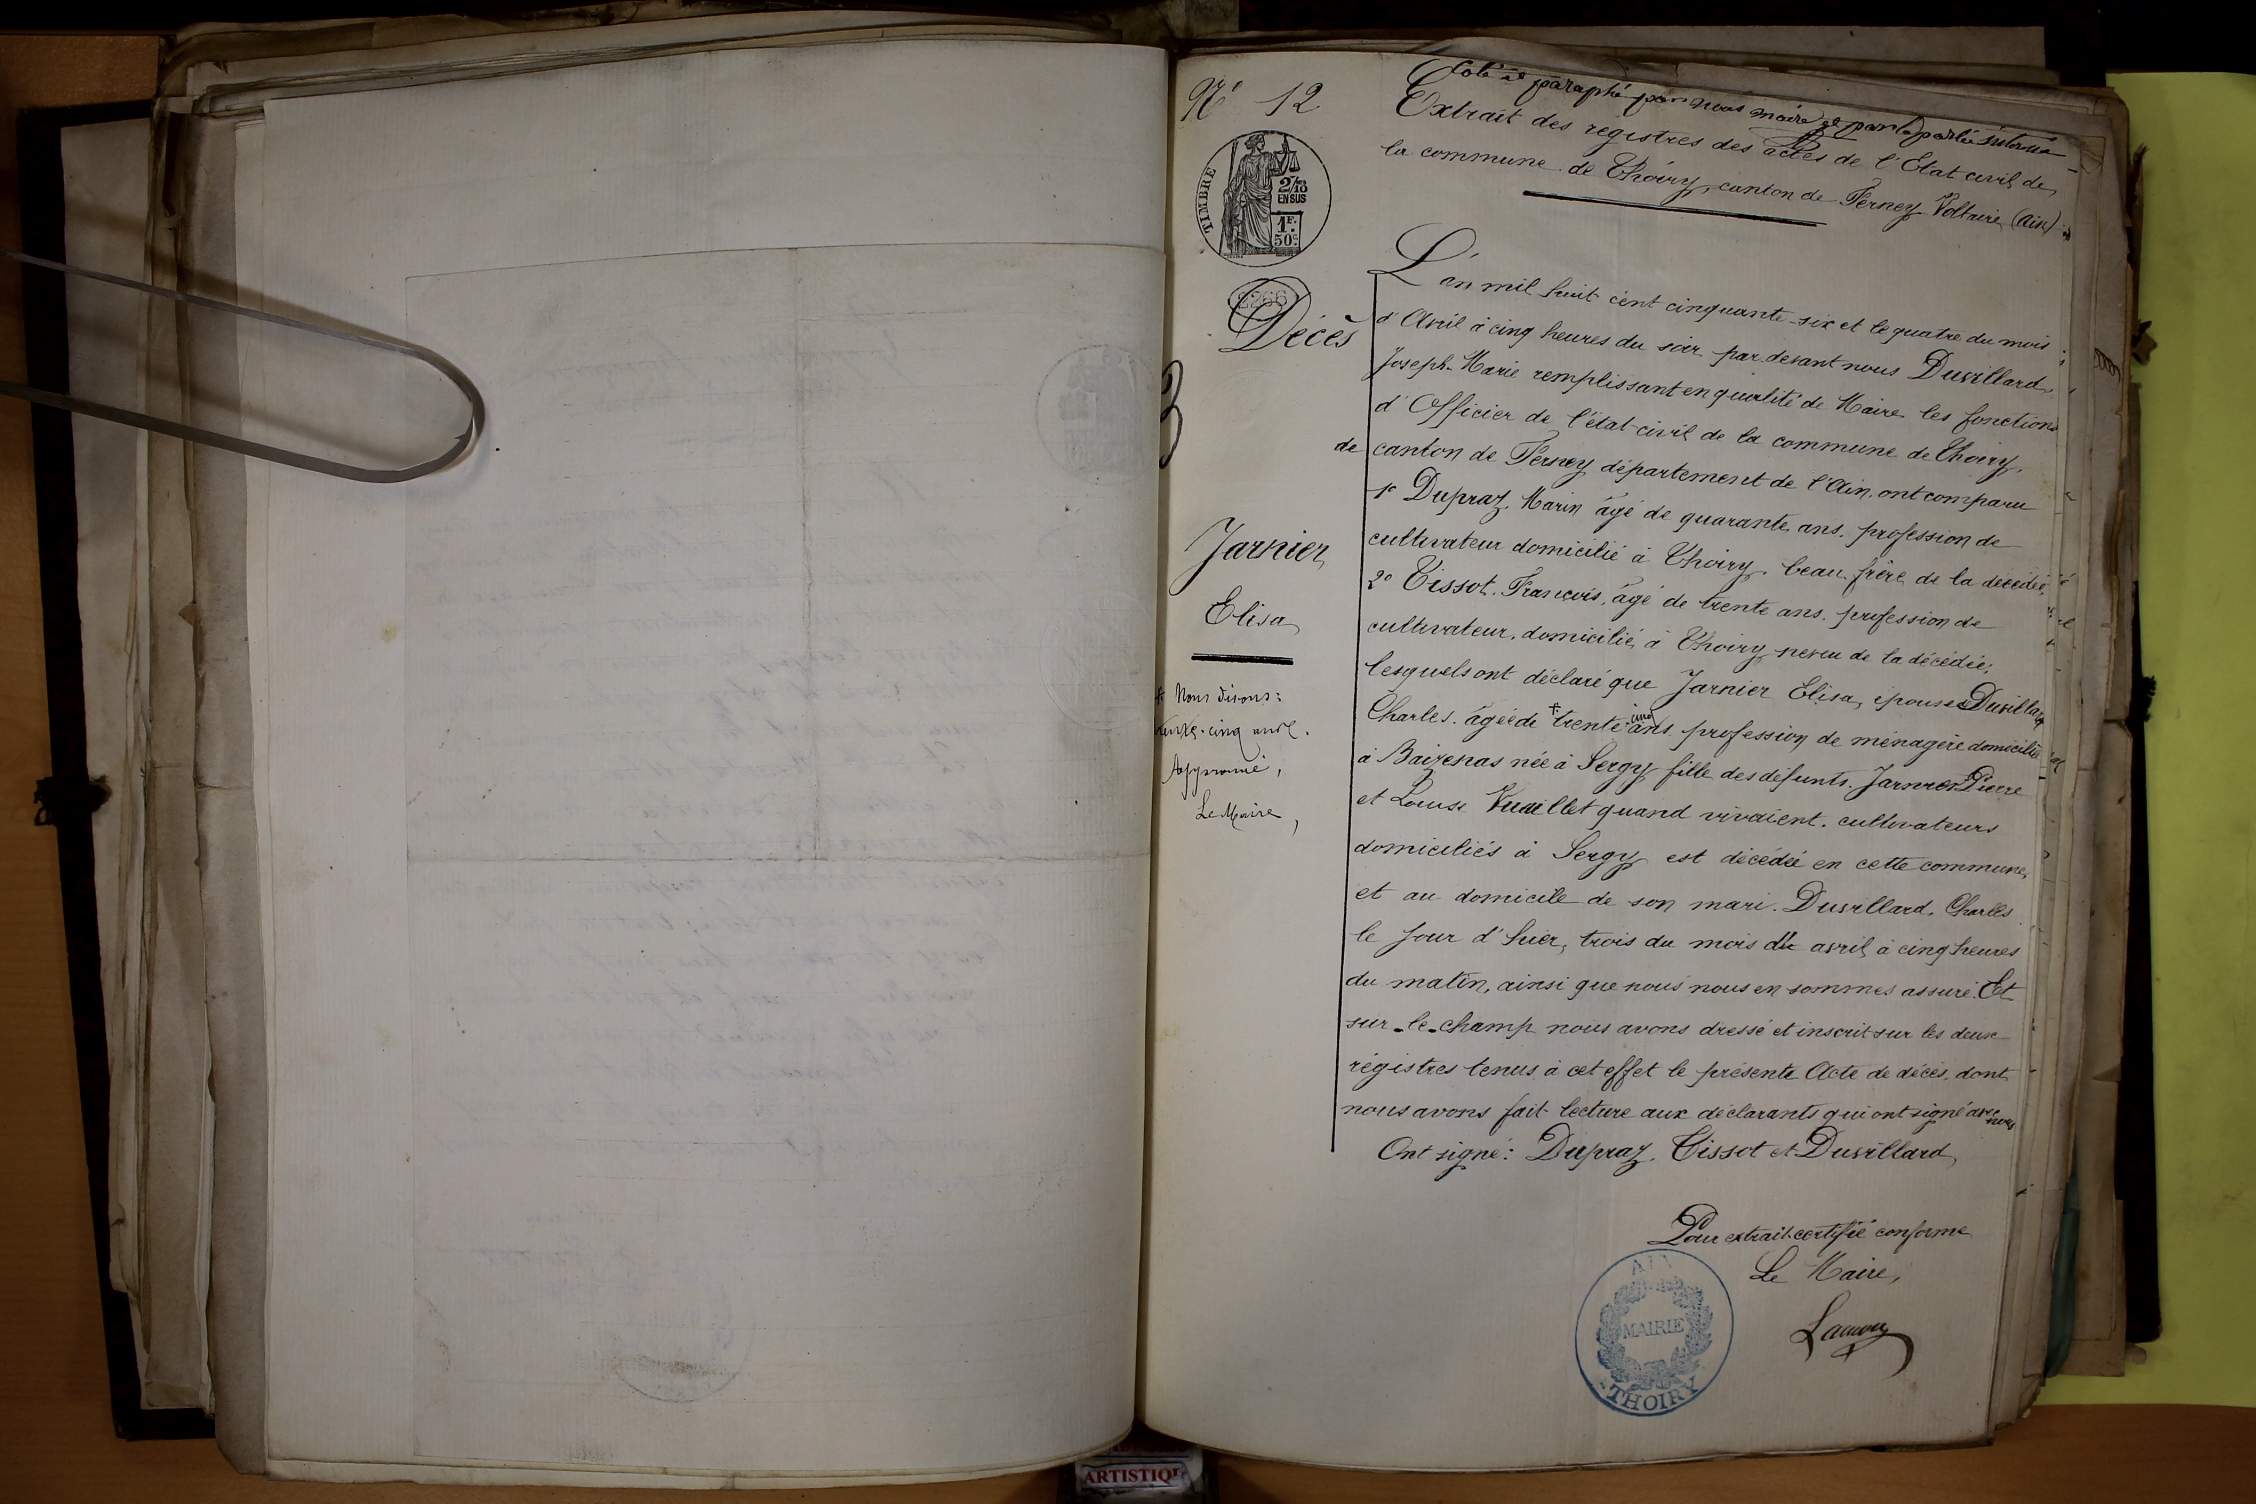 Nº 12
Coté et paraphé par nous maire et par la partie intéressée
Extrait des régistres des actes de l'Etat civil de
la commune de Thoiry, canton de Ferney Voltaire (Ain)
TIMBRE
2/10
EN SUS
1F.
50c.
2266
Décès
de
Jarnier
Elisa
Nous disons:
trente-cinq ans.
Approuvé,
Le Maire,
L'an mil huit cent cinquante-six et le quatre du mois
d'Avril à cinq heures du soir par devant nous Duvillard
Joseph-Marie remplissant en qualité de Maire les fonctions
d'Officier de l'état-civil de la commune de Thoiry,
canton de Ferney département de l'Ain, ont comparu
1º Dupraz. Marin âgé de quarante ans. profession de
cultivateur domicilié à Thoiry. beau-frère de la décédée.
2º Tissot. François, âgé de trente ans. profession de
cultivateur. domicilié à Thoiry neveu de la décédée;
lesquels ont déclaré que Jarnier Elisa, épouse Duvillard
Charles. âgée de + trente-cinq ans. profession de ménagère domiciliée
à Baizenas née à Sergy fille des défunts. Jarnier Pierre
et Louise Vuaillet quand vivaient. cultivateurs
domiciliés à Sergy est décédée en cette commune,
et au domicile de son mari. Duvillard. Charles
le jour d'hier, trois du mois du avril à cinq heures
du matin, ainsi que nous nous en sommes assuré. Et
sur-le-champ nous avons dressé et inscrit sur les deux
régistres tenus à cet effet le présente Acte de décès. dont
nous avons fait lecture aux déclarants qui ont signé avec nous
Ont signé: Dupraz. Tissot et Duvillard,
Pour extrait certifié conforme
Le Maire,
AIN
MAIRIE
THOIRY
ARTISTIQUE